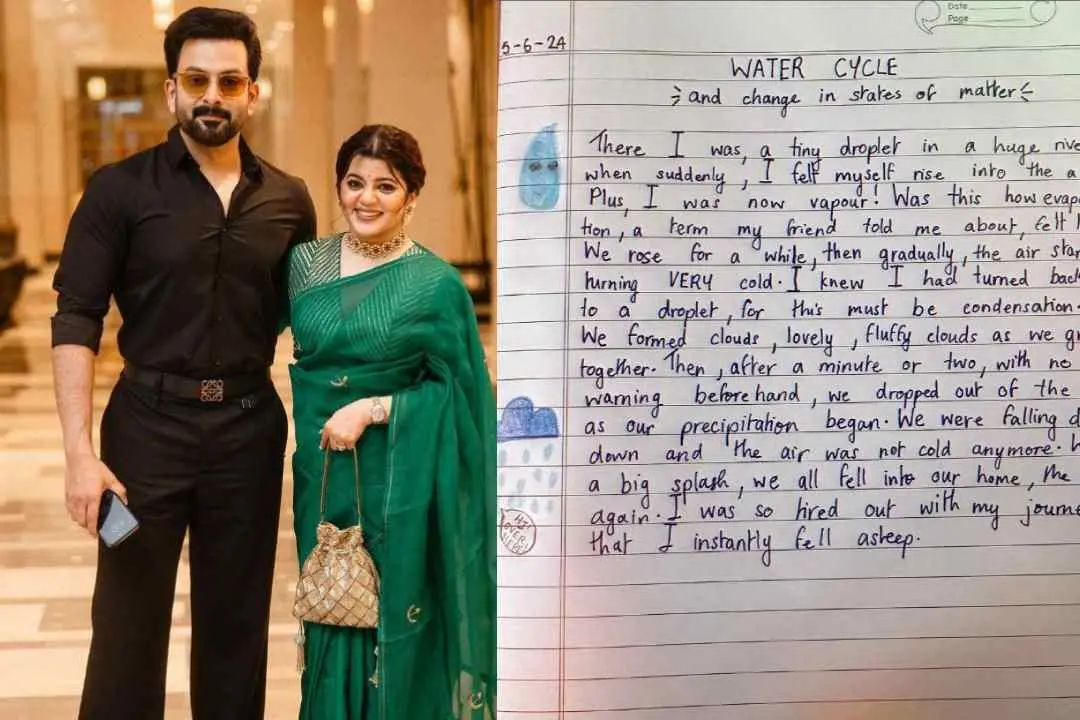 Date
Page
5-6-24
WATER CYCLE
and change in states of matter
There I was, a tiny droplet in a huge rive
when suddenly, I felt myself rise into the a
Plus, I was now vapour! Was this how evapo
tion, a term my friend told me about, felt l
We rose for a while, then gradually, the air star
turning VERY cold. I knew I had turned back
to a droplet, for this must be condensation.
We formed clouds, lovely, fluffy clouds as we gr
together. Then, after a minute or two, with no
warning beforehand, we dropped out of the
as our precipitation began. We were falling d
down and the air was not cold anymore. W
a big splash, we all fell into our home, the
again. I was so tired out with my journe
that I instantly fell asleep.